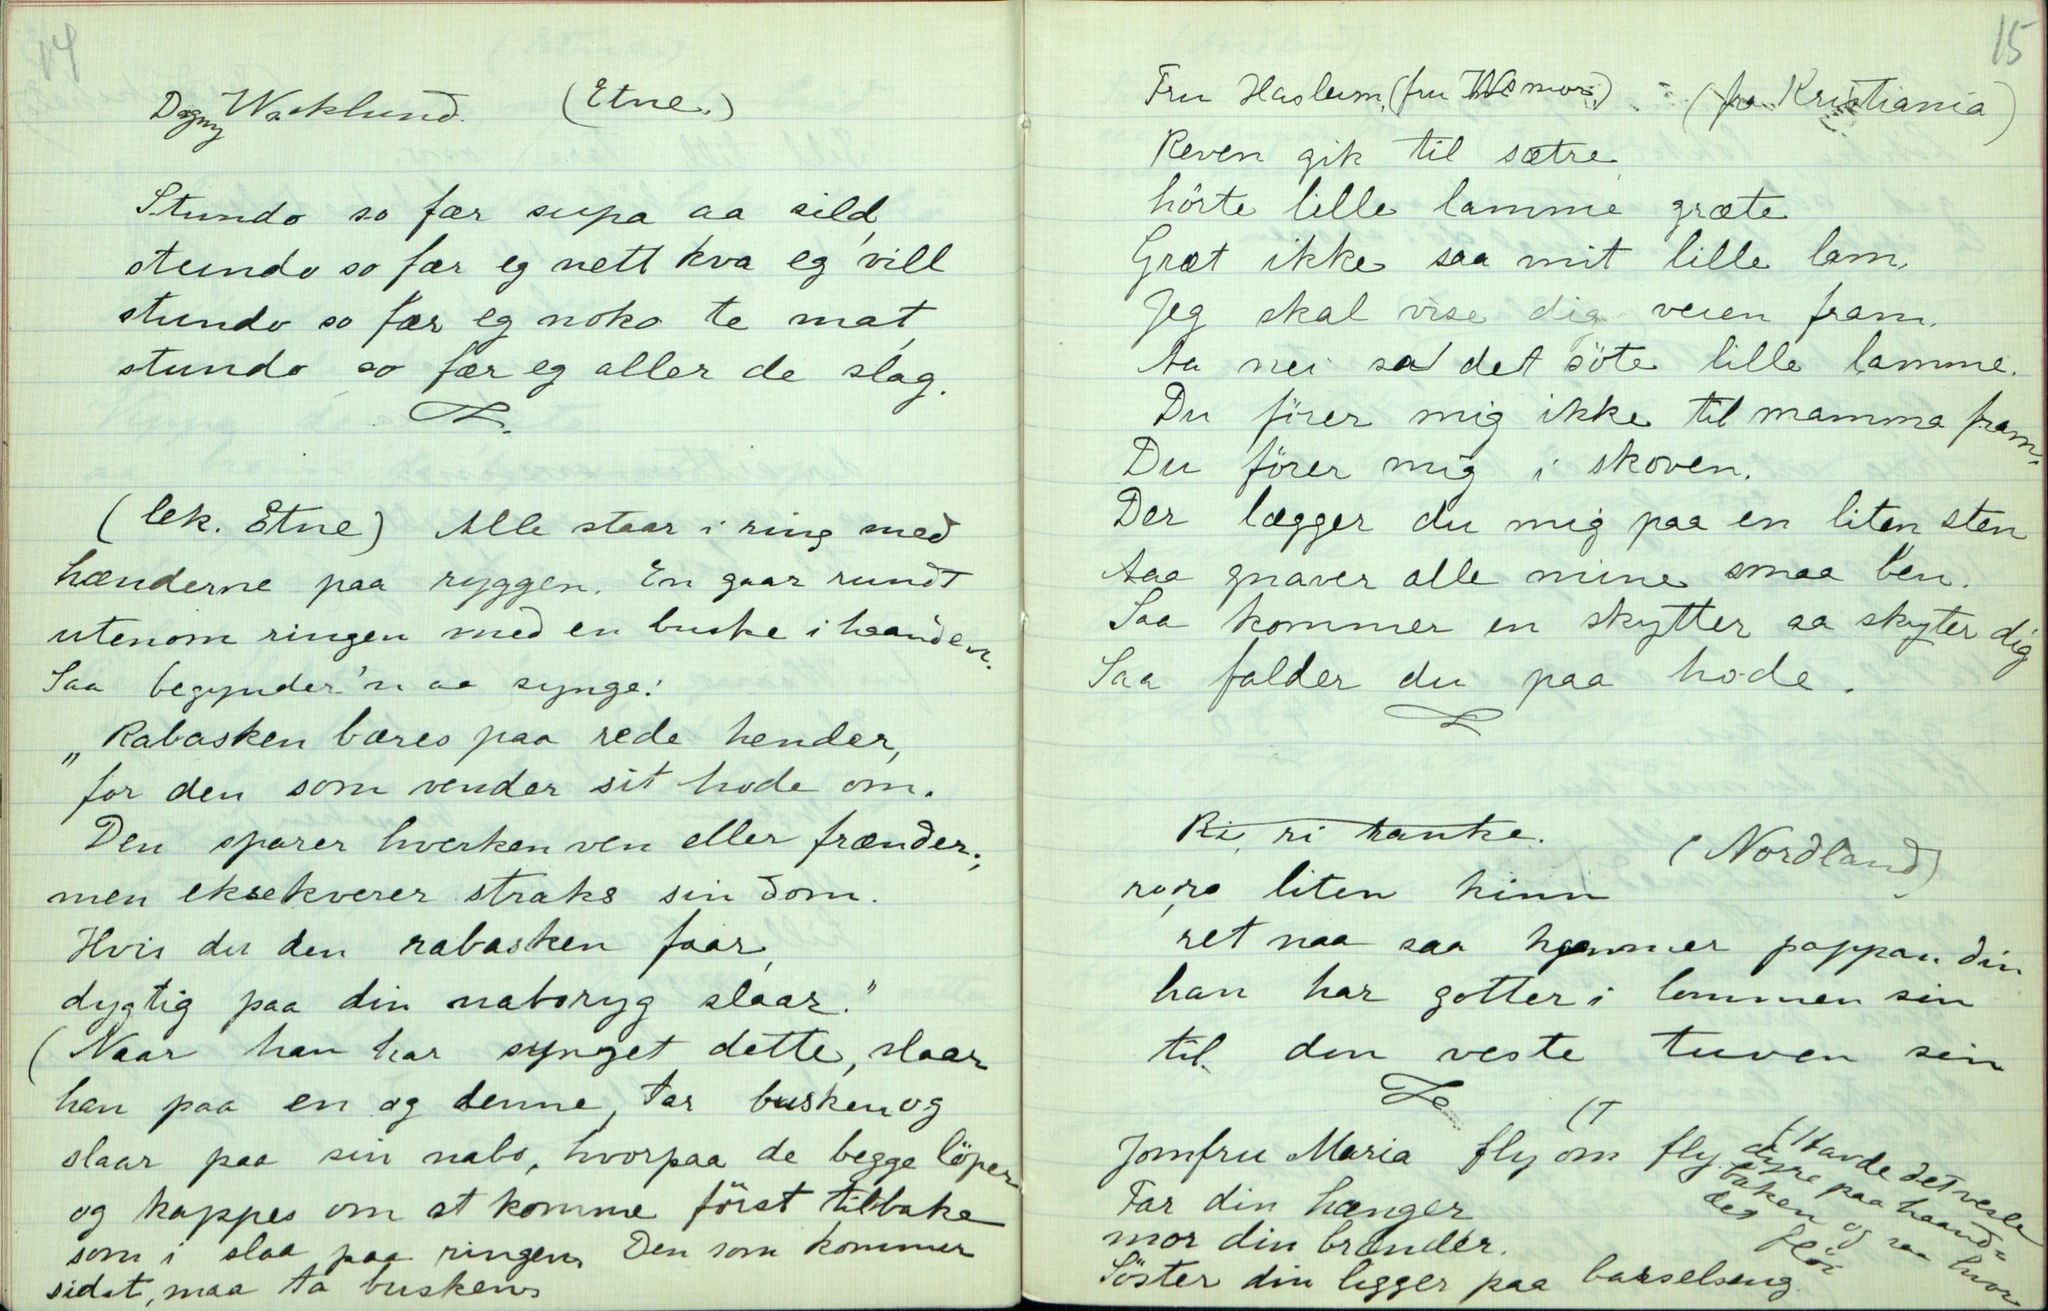 14
Dagny Wicklund. (Etne.)
Stundo so fær supa aa sild,
stundo so fær eg nett kva eg vill
stundo so fær eg noko te mat,
stundo so fær eg aller de slag.
(lek. Etne) Alle staar i ring med
hænderne paa ryggen. En gaar rundt
utenom ringen med en buske i haanden.
Saa begynder'n aa synge:
"Rabasken bæres paa rede hender,
for den som vender sit hode om.
Den sparer hverken ven eller frænder;
men eksekverer straks sin dom.
Hvis du den rabasken faar,
dygtig paa din naboryg slaar."
(Naar han har synget dette, slaar
han paa en og denne, tar busken og
slaar paa sin nabo, hvorpaa de begge löper
og kappes om at komme först tilbake
som i slaa paa ringen. Den som kommer
sidst, maa ta busken.
15
Fru Haslum, (fru (fra Kristiania)
Reven gik til sætre,
hörte lille lamme græte
Græt ikke saa mit lille lam,
Jeg skal vise dig veien fram.
Aa nei sa det söte lille lamme.
Du förer mig ikke til mamma fram.
Du förer mig i skoven.
Der lægger du mig paa en liten sten
Aaa gnaver alle mine smaa ben.
Saa kommer en skytter aa skyter dig
Saa falder du paa hode.
Ri, ri ranke.
(Nordland)
ro, ro liten hinn
ret naa saa kommer pappan din
han har gotter i lommen sin
til den veste tuven sin
Jomfru Maria fly om fly.
Far din hænger,
mor din brænder.
Söster din ligger paa barselseng
(Havde det vesle
dyre paa haand-
baken og saa hvor
det flöi